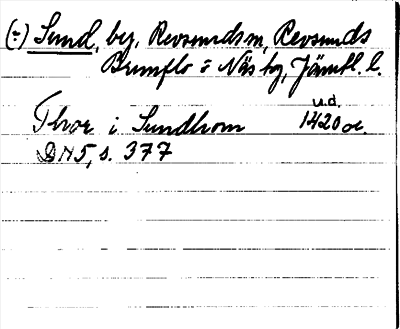 (-) Sund, by, Revsundsm, Revsunds
Brunflo o Näs tg, Jämtl. l.
u.d.
Thror i Sundhrom 1420 or.
DN5, s. 377